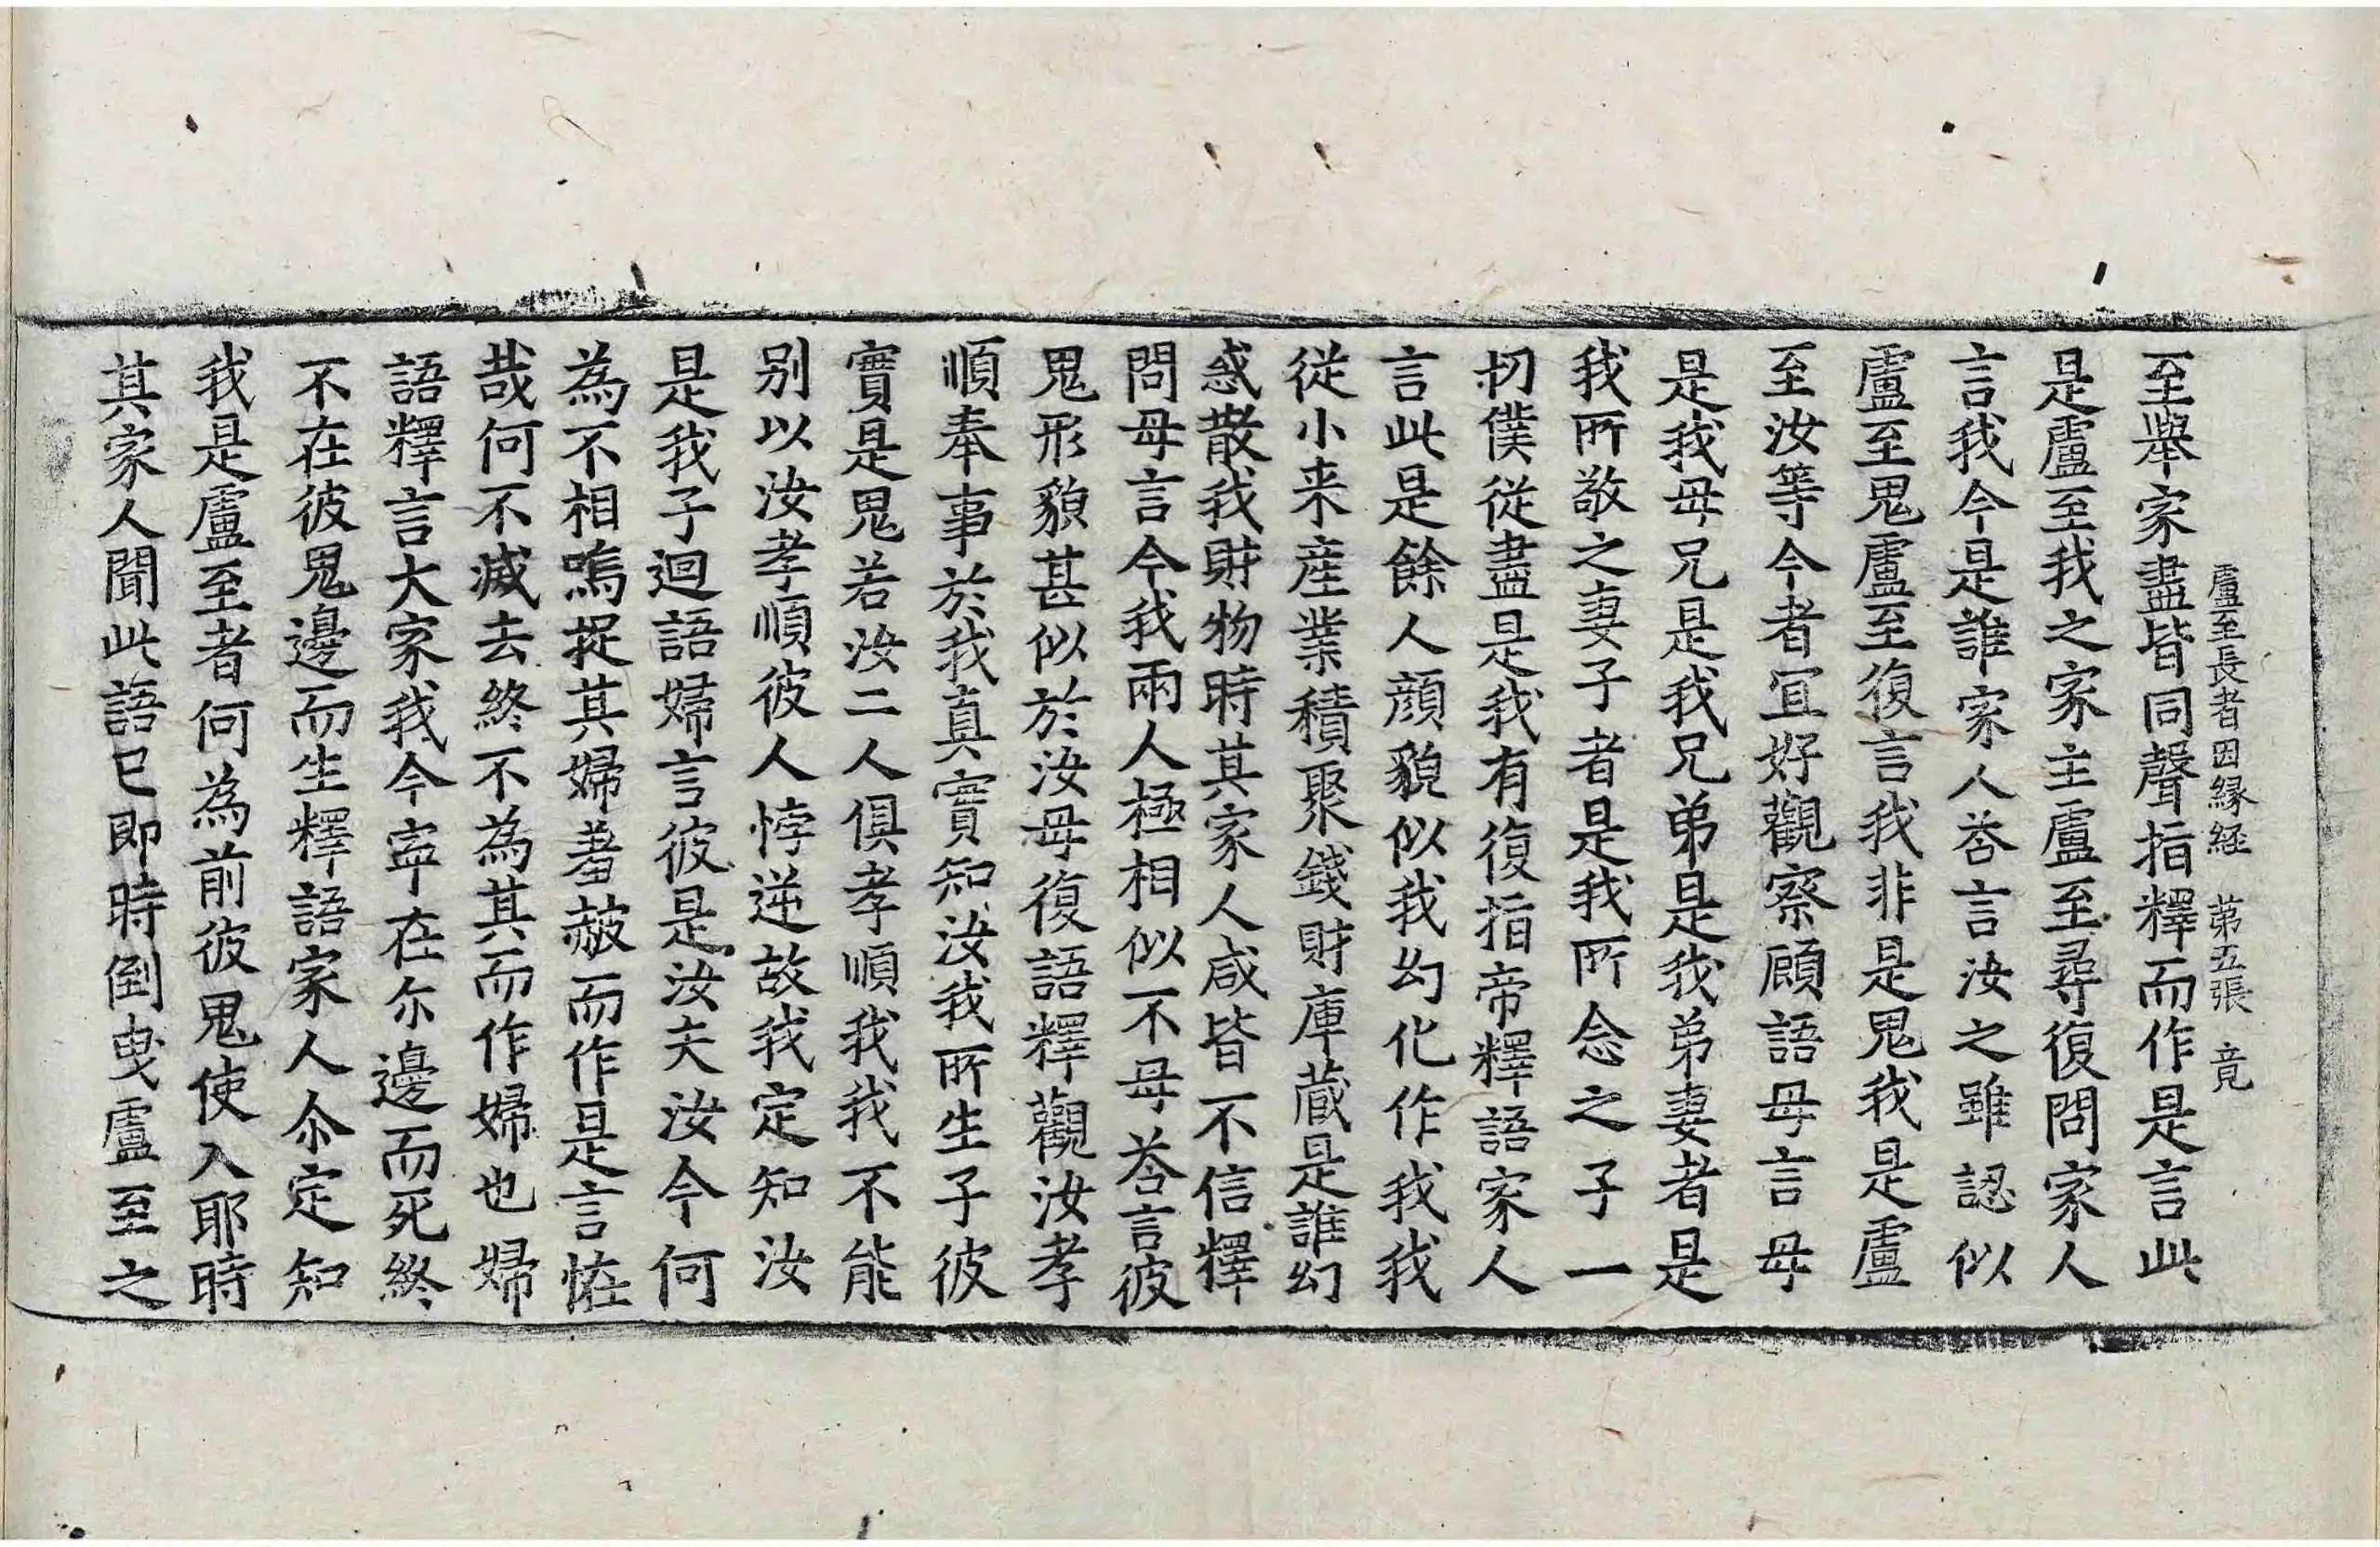 盧至長者因縁経　第五張　竟
至舉家盡皆同聲指釋而作是言此
是盧至我之家主盧至尋復問家人
言我今是誰家人荅言汝之雖認似
盧至鬼盧至復言我非是鬼我是盧
至汝等今者宜好觀察顧語母言母
是我母兄是我兄弟是我弟妻者是
我所敬之妻子者是我所念之子一
切僕從盡是我有復指帝釋語家人
言此是餘人顔貌似我幻化作我我
從小来産業積聚錢財庫藏是誰幻
惑散我財物時其家人咸皆不信釋
問母言今我兩人極相似不母荅言彼
鬼形貌甚似於汝母復語釋觀汝孝
順奉事於我真實知汝我所生子彼
實是鬼若汝二人俱孝順我我不能
别以汝孝順彼人悖逆故我定知汝
是我子迴語婦言彼是汝夫汝今何
為不相嗚捉其婦羞赧而作是言恠
哉何不滅去終不為其而作婦也婦
語釋言大家我今寧在尒邊而死終
不在彼鬼邊而生釋語家人尒定知
我是盧至者何為前彼鬼使入耶時
其家人聞此語已即時倒曳盧至之